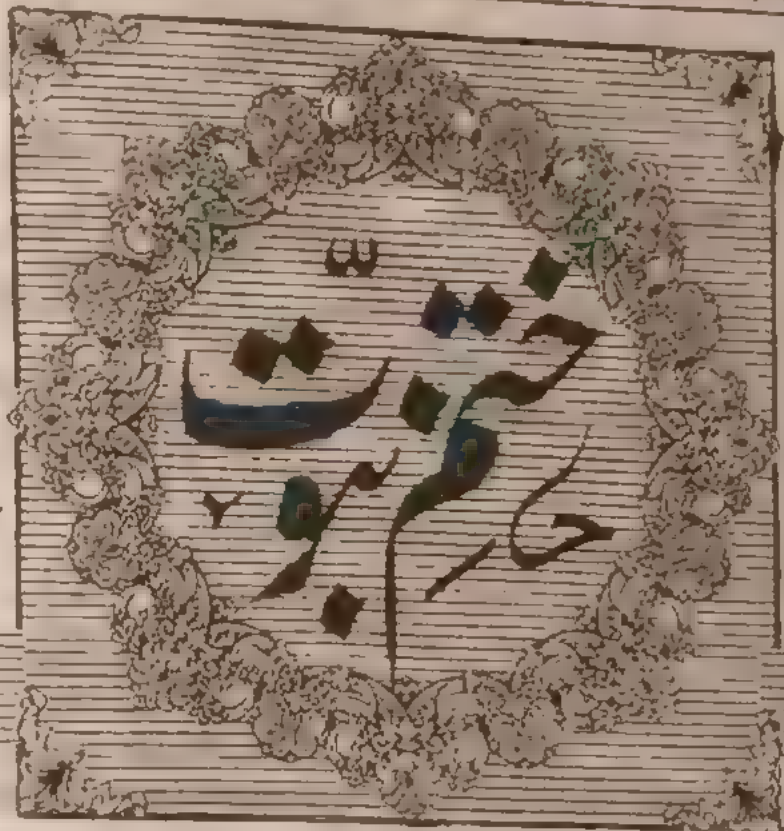 ختم نبوت